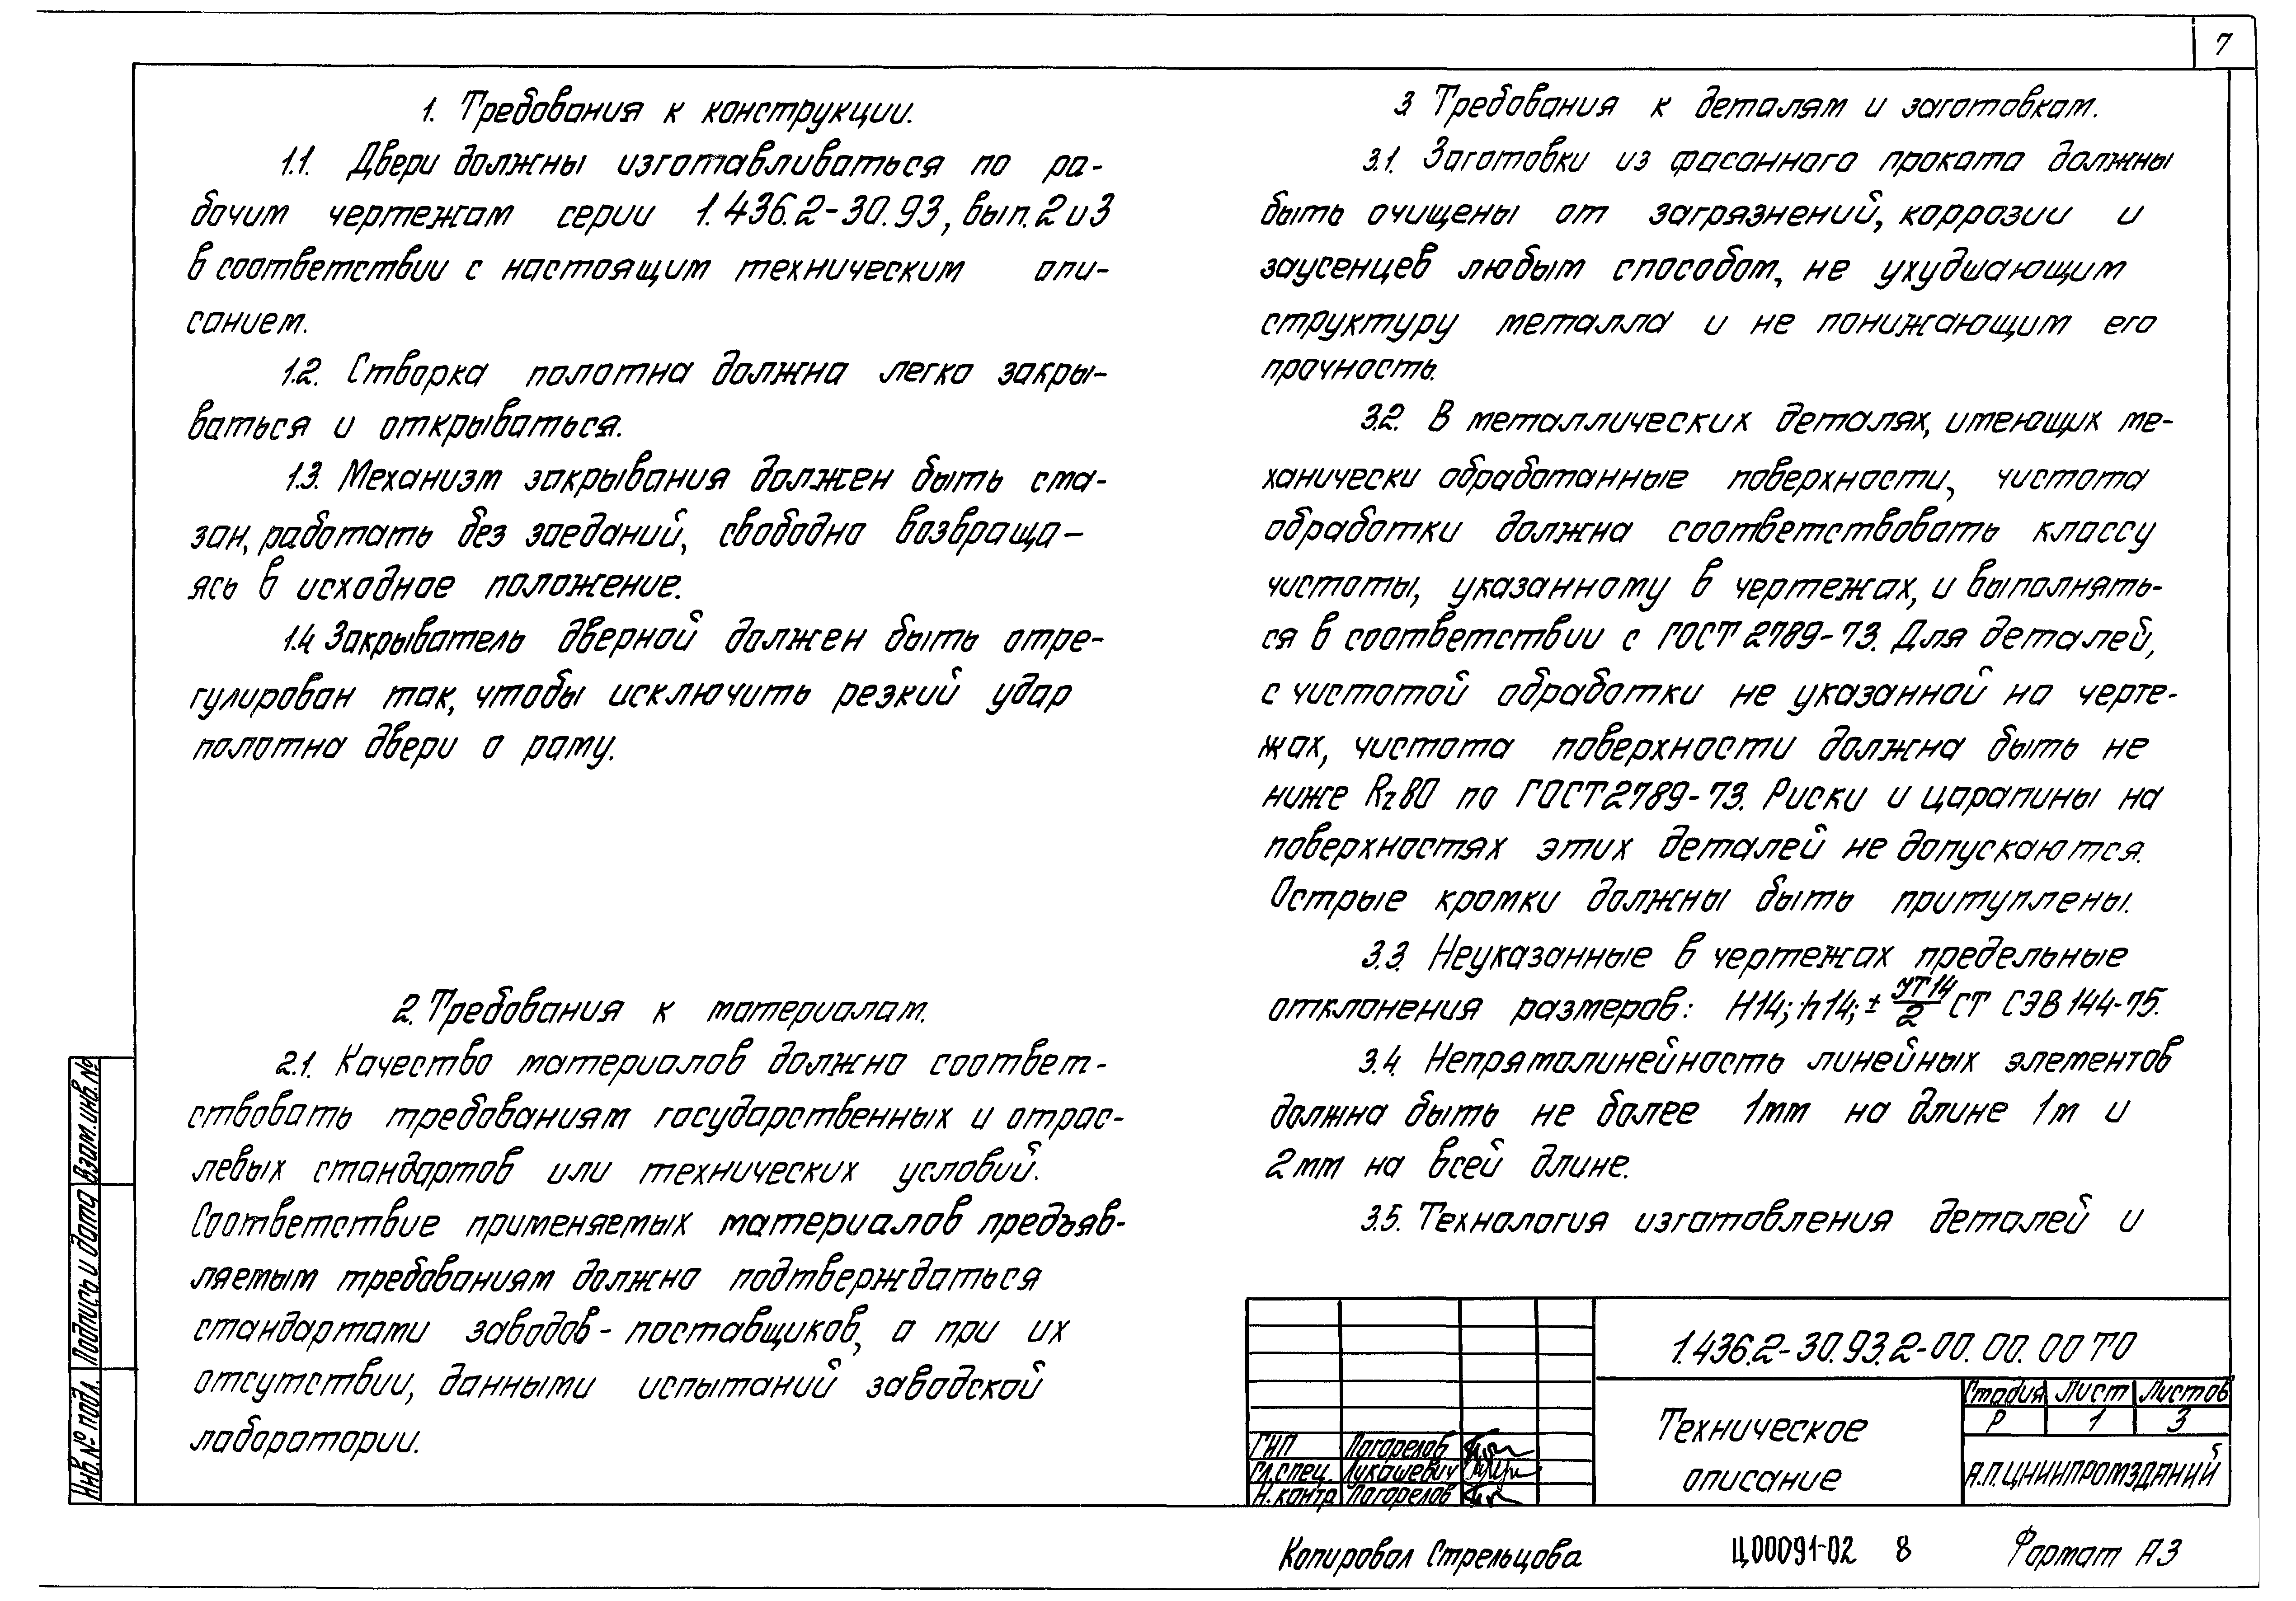 7
1. Требования к конструкции.
1.1. Двери должны изготавливаться по ра-
бочим чертежам серии 1.436.2-30.93, вып. 2 и 3
в соответствии с настоящим техническим опи-
санием.
1.2. Створка полотна должна легко закры-
ваться и открываться.
1.3. Механизм закрывания должен быть сма-
зан, работать без заеданий, свободно возвраща-
ясь в исходное положение.
1.4 Закрыватель дверной должен быть отре-
гулирован так, чтобы исключить резкий удар
полотна двери о раму.
2. Требования к материалам.
2.1. Качество материалов должно соответ-
ствовать требованиям государственных и отрас-
левых стандартов или технических условий.
Соответствие применяемых материалов предъяв-
ляемым требованиям должно подтверждаться
стандартами заводов-поставщиков, а при их
отсутствии, данными испытаний заводской
лаборатории.
3 Требования к деталям и заготовкам.
3.1. Заготовки из фасонного проката должны
быть очищены от загрязнений, коррозии и
заусенцев любым способом, не ухудшающим
структуру металла и не понижающим его
прочность.
3.2. В металлических деталях, имеющих ме-
ханически обработанные поверхности, чистота
обработки должна соответствовать классу
чистоты, указанному в чертежах, и выполнять-
ся в соответствии с ГОСТ 2789-73. Для деталей,
с чистотой обработки не указанной на черте-
жах, чистота поверхности должна быть не
ниже Rz80 по ГОСТ 2789-73. Риски и царапины на
поверхностях этих деталей не допускаются.
Острые кромки должны быть притуплены.
3.3. Неуказанные в чертежах предельные
отклонения размеров: H14; h14; ± УТ14/2 СТ СЭВ 144-75.
3.4. Непрямолинейность линейных элементов
должна быть не более 1мм на длине 1м и
2мм на всей длине.
3.5. Технология изготовления деталей и
1.436.2-30.93.2-00.00.00 ТО
Техническое
описание
Стадия Лист Листов
Р 1 3
А.П. ЦНИИПРОМЗДАНИЙ
ГИП Погорелов
Гл.спец. Лукашевич
Н.контр Погорелов
Инв.№ подл. Подпись и дата Взам.инв.№
Копировал Стрельцова Ц00091-02 8 Формат А3